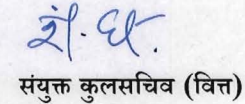 शै. घ.
संयुक्त कुलसचिव (वित्त)